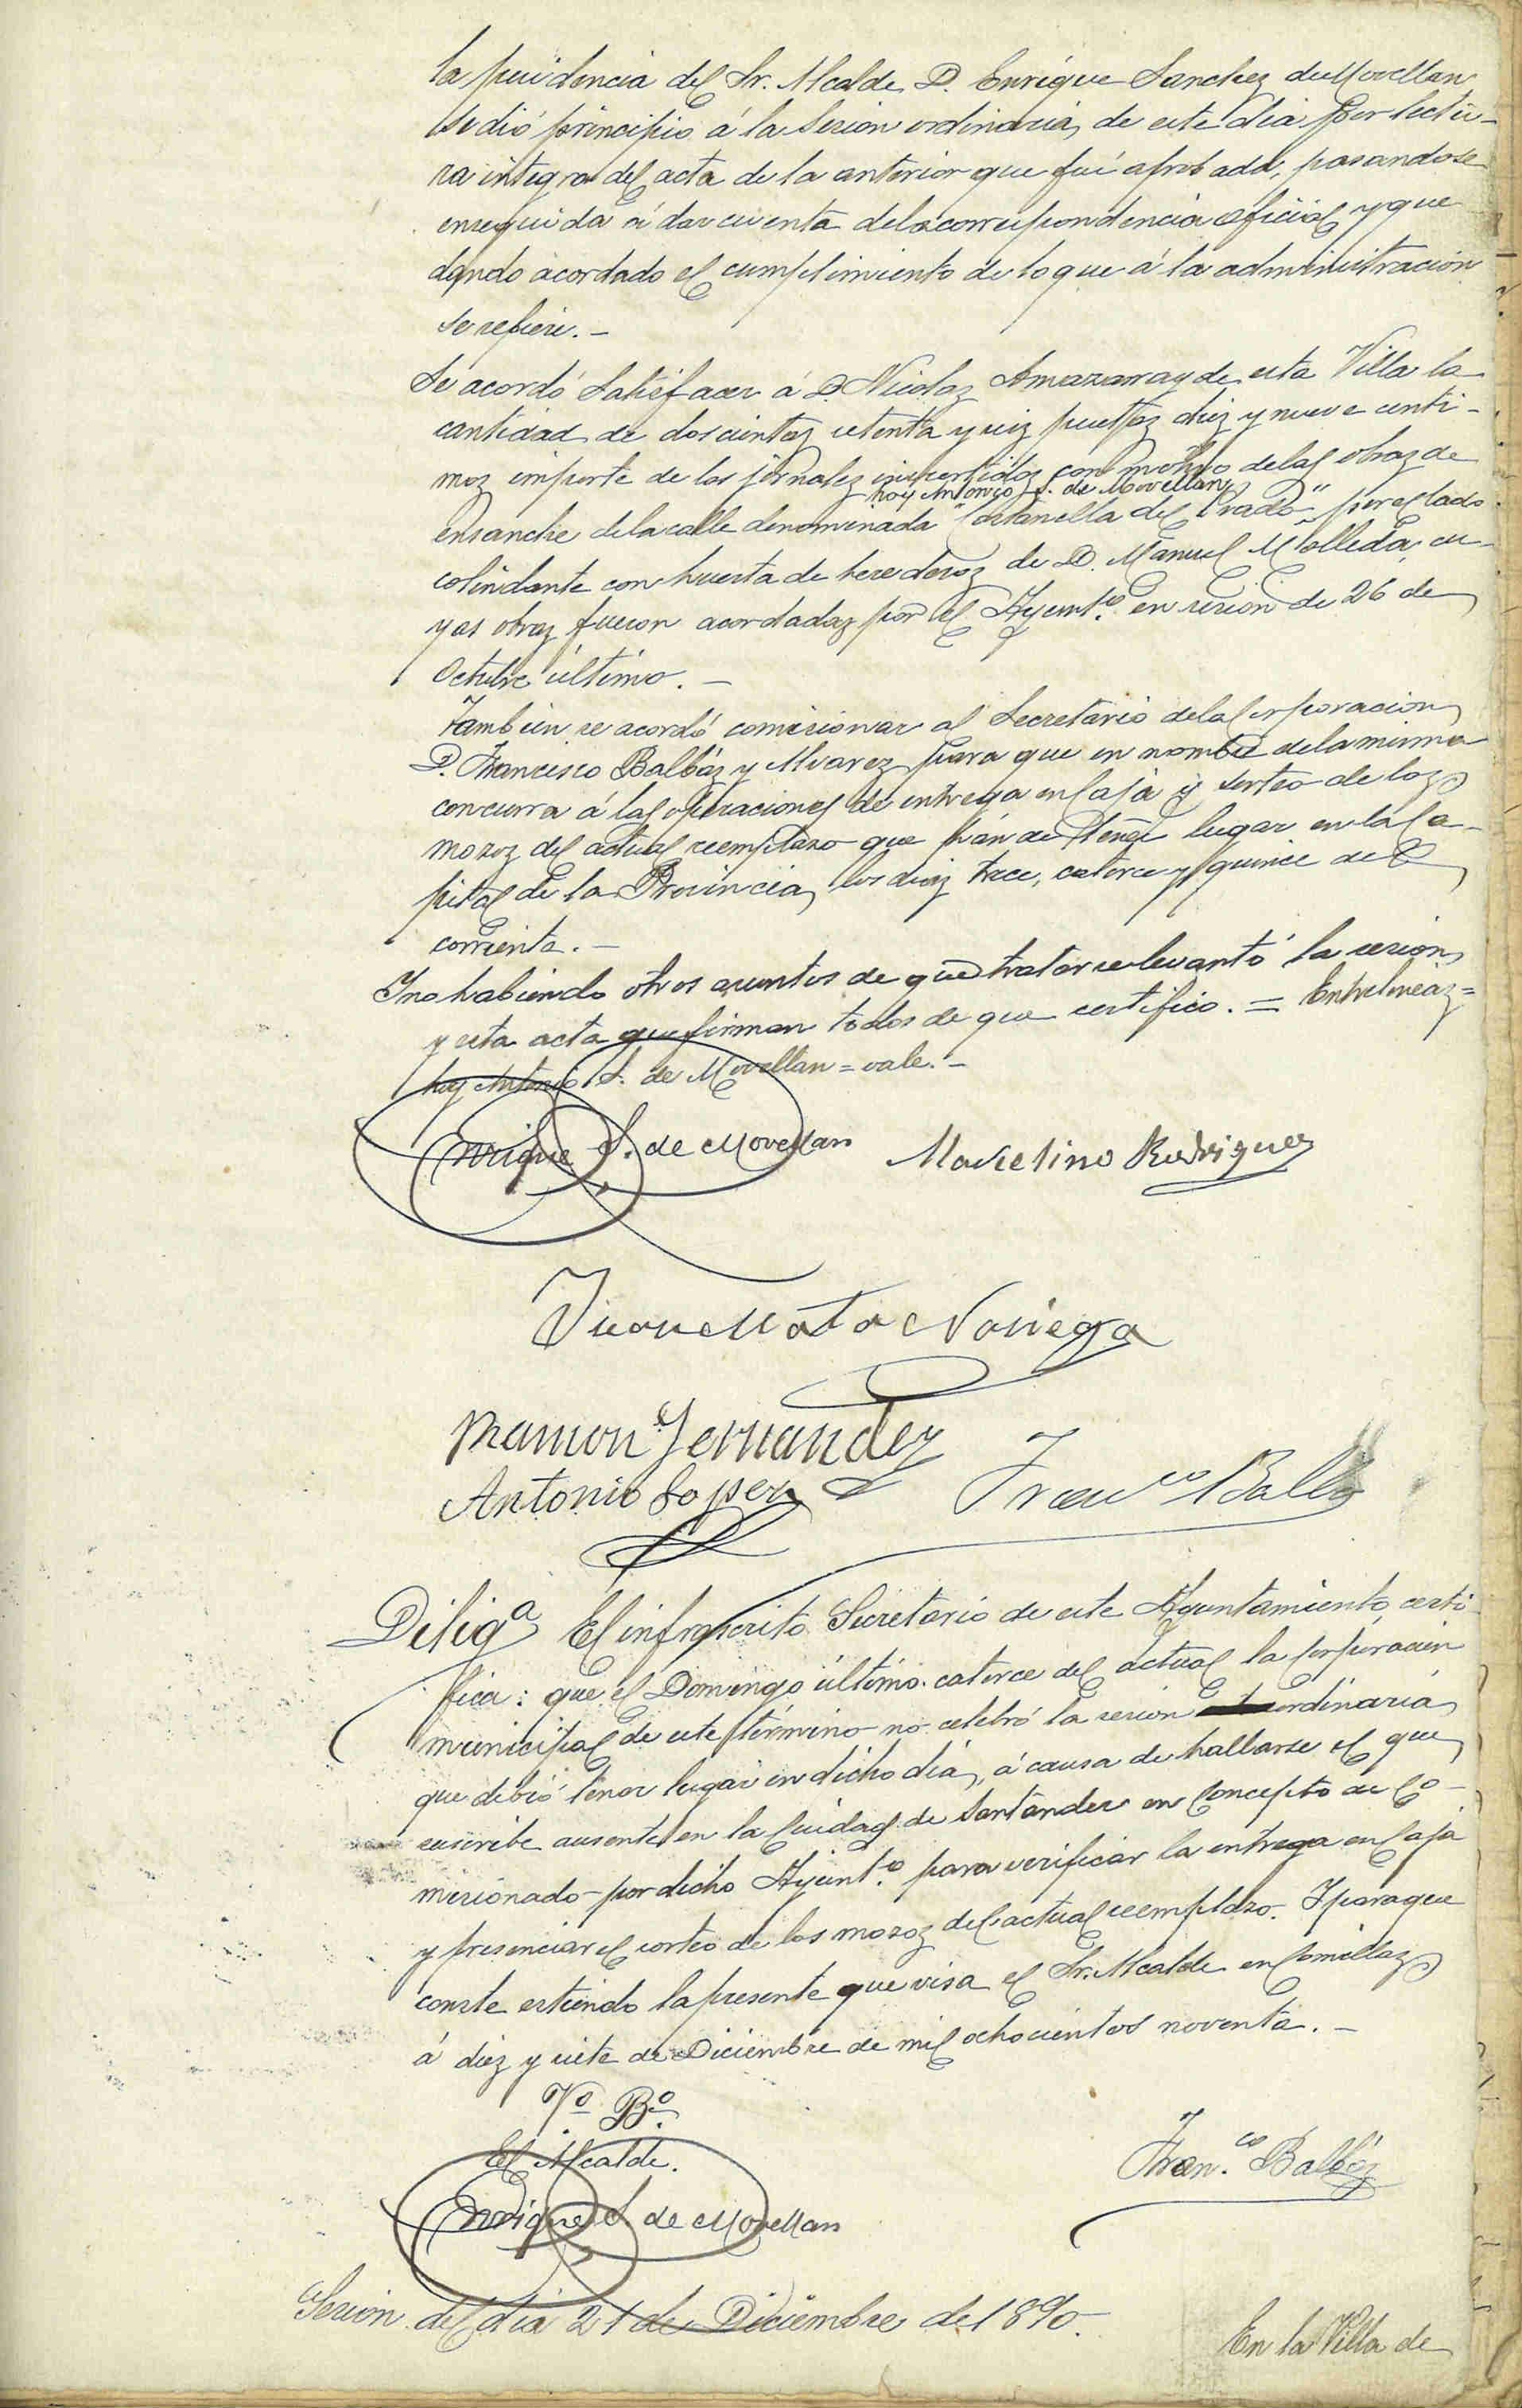 la presidencia del Sr. Alcalde D. Enrique Sanchez de Movellan
se dió principio á la sesion ordinaria de este dia por lectu-
ra integra del acta de la anterior que fué aprobada, pasandose
enseguida á dar cuenta de la correspondencia oficial y que
dando acordado el cumplimiento de lo que á la administracion
se refiere. –
Se acordó satisfacer á D. Nicolas de esta Villa la
cantidad de doscientas setenta y seis pesetas diez y nueve centi-
mos importe de los jornales invertidos con motivo de las obras de
hoy Antonio S. de Movellan
ensanche de la calle denominada "Castanella del Prado" por el lado
colindante con huerta de herederos de D. Manuel Molleda, cu-
yas obras fueron acordadas por el Ayunt.º en sesion de 26 de
Octubre último. –
Tambien se acordó comisionar al Secretario de la Corporacion
D. Francisco Balbás y Alvarez para que en nombre de la misma
concurra á las operaciones de entrega en Caja y sorteo de los
mozos del actual reemplazo que hán de tener lugar en la Ca-
pital de la Provincia los dias trece, catorce y quince del
corriente. –
Y no habiendo otros asuntos de que tratar se levantó la sesion
y esta acta que firman todos de que certifico. = Entrelineas =
hoy Antonio S. de Movellan = vale. –
Enrique S. de Movellan Marcelino Rodriguez
Juan Mata Noriega
Ramon Fernandez
Antonio Lopez Fran.co Balbás
Dilig.a El infrascrito Secretario de este Ayuntamiento, certi-
fica: que el Domingo último catorce del actual la Corporacion
municipal de este término no celebró la sesion ordinaria
que debió tener lugar en dicho dia, á causa de hallarse el que
suscribe ausente en la Ciudad de Santander en Concepto de Co-
misionado por dicho Ayunt.º para verificar la entrega en Caja
y presenciar el sorteo de los mozos del actual reemplazo. Y para que
conste estiendo la presente que visa el Sr. Alcalde en Comillas
á diez y siete de Diciembre de mil ochocientos noventa. –
Vº Bº
El Alcalde.
Enrique S. de Movellan Fran.co Balbás
Sesion del dia 21 de Diciembre de 1890.
En la Villa de